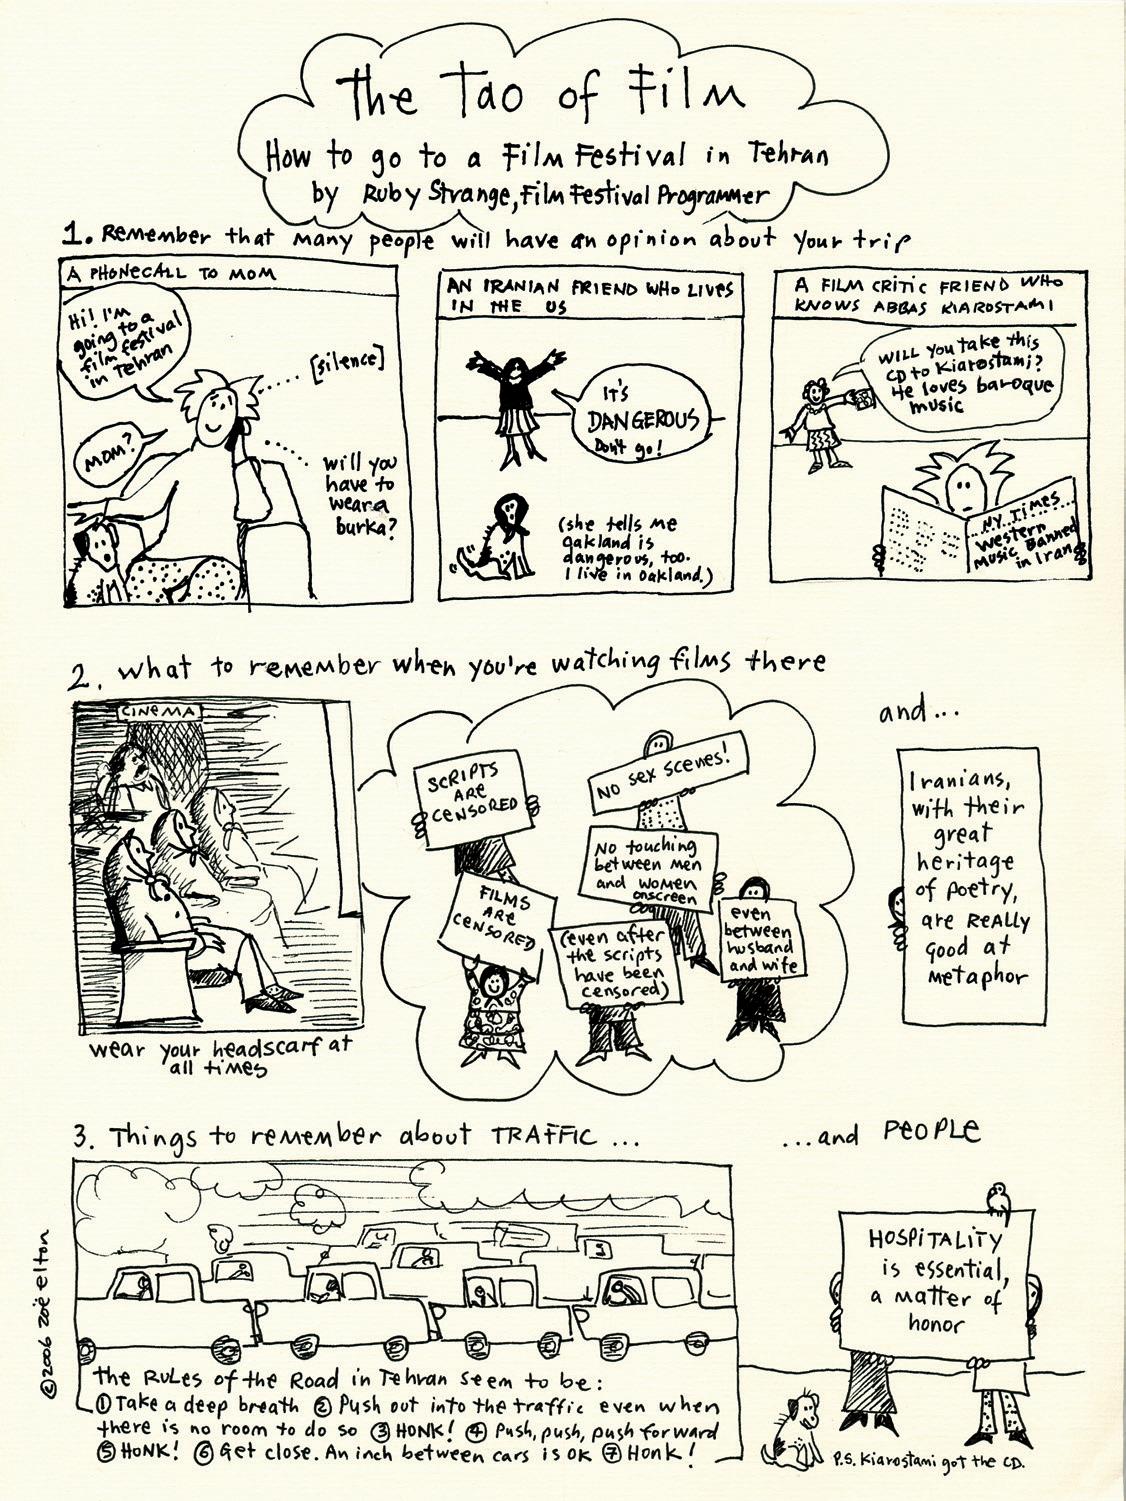 The Tao of Film
How to go to a Film Festival in Tehran
by Ruby Strange, Film Festival Programmer
1. Remember that many people will have an opinion about your trip
A PHONECALL TO MOM
Hi! I'm
going to a
film festival
in Tehran
[silence]
MOM?
will you
have to
wear a
burka?
AN IRANIAN FRIEND WHO LIVES
IN THE US
IT'S
DANGEROUS
Don't go!
(she tells me
Oakland is
dangerous, too.
I live in Oakland.)
A FILM CRITIC FRIEND WHO
KNOWS ABBAS KIAROSTAMI
WILL YOU take this
CD to Kiarostami?
He loves baroque
music
NY Times...
Western
Music Banned
in Iran
2. What to remember when you're watching films there
CINEMA
wear your headscarf at
all times
SCRIPTS
ARE
CENSORED
NO SEX SCENES!
NO touching
between men
and women
onscreen
FILMS
ARE
CENSORED
(even after
the scripts
have been
censored)
even
between
husband
and wife
and...
Iranians,
with their
great
heritage
of poetry,
are REALLY
good at
metaphor
3. Things to remember about TRAFFIC ...
The Rules of the Road in Tehran seem to be:
① Take a deep breath ② Push out into the traffic even when
there is no room to do so ③ HONK! ④ Push, push, push forward
⑤ HONK! ⑥ Get close. An inch between cars is OK ⑦ Honk!
...and PEOPLE
HOSPITALITY
is essential,
a matter of
honor
P.S. Kiarostami got the CD.
©2006 Zoë Elton